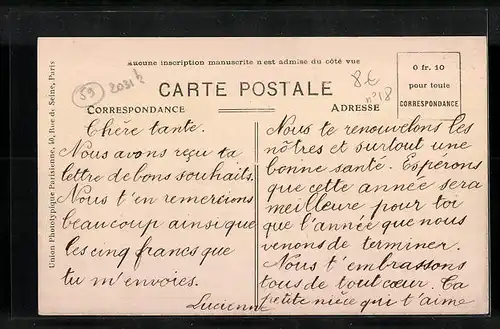 Aucune inscription manuscrite n'est admise du côté vue
59
8€
n°18
CARTE POSTALE
0 fr. 10
pour toute
CORRESPONDANCE
CORRESPONDANCE
ADRESSE
Union Phototypique Parisienne, 40, Rue de Seine, Paris
Chère tante.
Nous avons reçu ta
lettre de bons souhaits.
Nous t'en remercions
beaucoup ainsi que
les cinq francs que
tu m'envoies.
Nous te renouvelons les
nôtres et surtout une
bonne santé. Espérons
que cette année sera
meilleure pour toi
que l'année que nous
venons de terminer.
Nous t'embrassons
tous de tout cœur. Ta
petite nièce qui t'aime
Lucienne